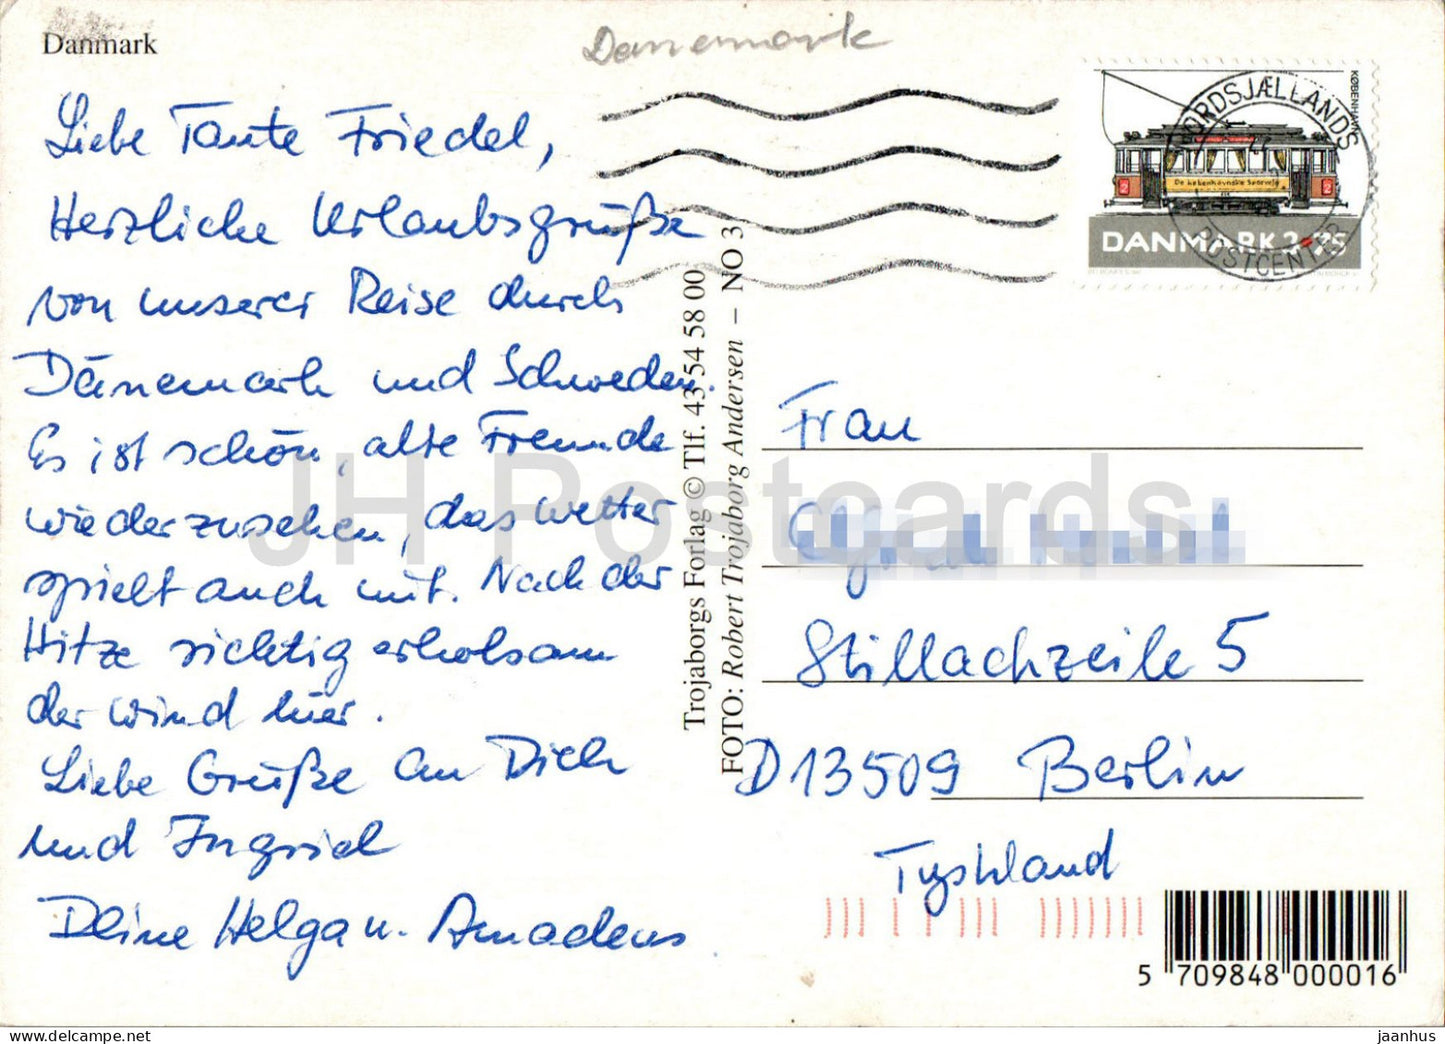 Danmark
Danemark
Liebe Tante Friedel,
Herzliche Urlaubsgrüße
von unserer Reise durch
Dänemark und Schweden.
Es ist schön, alte Freunde
wiederzusehen, das Wetter
spielt auch mit. Nach der
Hitze richtig erholsam
der Wind hier.
Liebe Grüße an Dich
und Ingrid
Deine Helga u. Amadeus
Trojaborgs Forlag © Tlf. 43 54 58 00
FOTO: Robert Trojaborg Andersen – NO 3
KØBENHAVN
De københavnske Sporveje
2
2
DANMARK 3.75
NORDSJÆLLANDS
POSTCENTER
Frau
Stillachzeile 5
D 13509 Berlin
Tyskland
5 709848 000016
JH Postcards
delcampe.net
jaanhus